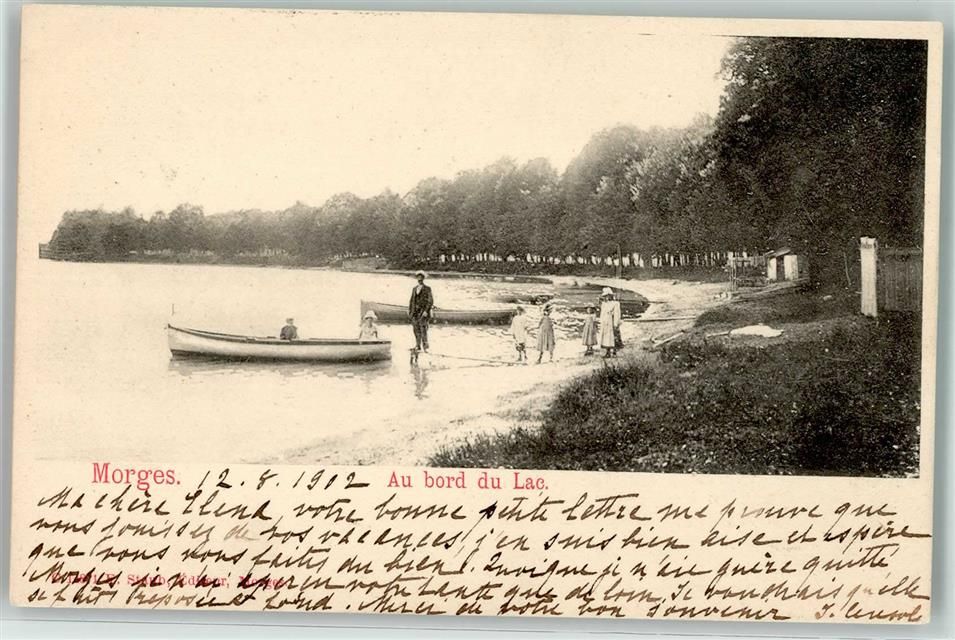 Morges. 12.8.1902 Au bord du Lac.
Ma chère Elena, votre bonne petite lettre me prouve que
vous jouissez de vos vacances, j'en suis bien aise et espère
que vous vous faites du bien! Quoique je n'aie guère quitté
Morges je n'ai votre tante que de loin. Je voudrais qu'elle
Staub, Éditeur, Morges
se fait reposée à fond. Merci de votre bon souvenir J.